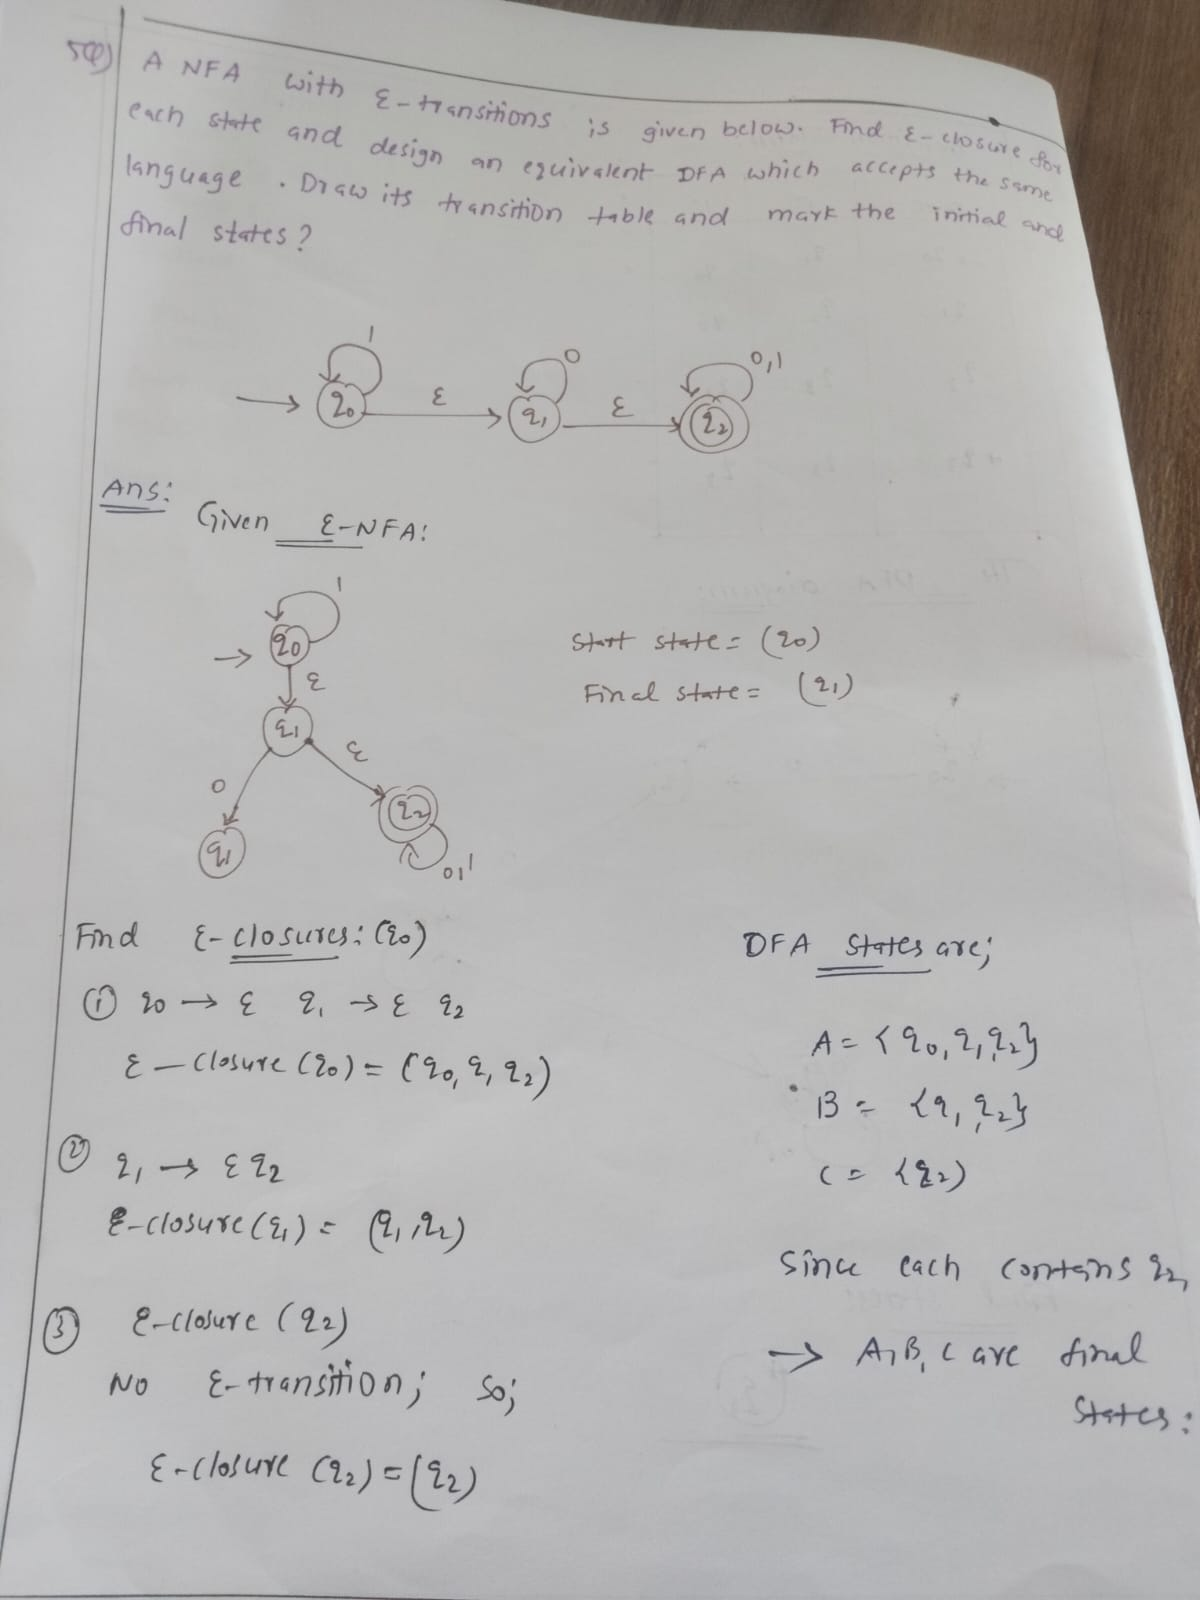 5Q) A NFA with ε-transitions is given below. Find ε-closure for
each state and design an equivalent DFA which accepts the same
language. Draw its transition table and mark the initial and
final states?
1
0
0,1
q0
ε
q1
ε
q2
Ans:
Given ε-NFA:
1
q0
ε
q1
0
ε
q1
q2
0,1
Start state = (q0)
Final state = (q1)
Find ε-closures: (q0)
① q0 → ε q1 → ε q2
ε-closure (q0) = (q0, q1, q2)
② q1 → ε q2
ε-closure (q1) = (q1, q2)
③ ε-closure (q2)
No ε-transition; So;
ε-closure (q2) = (q2)
DFA states are;
A = {q0, q1, q2}
B = {q1, q2}
C = {q2)
Since each contains q2,
→ A, B, C are final
states: